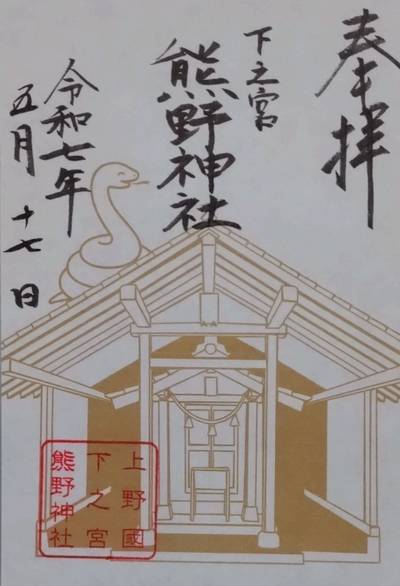 奉拝
下之宮
熊野神社
令和七年
五月十七日
上野國
下之宮
熊野神社